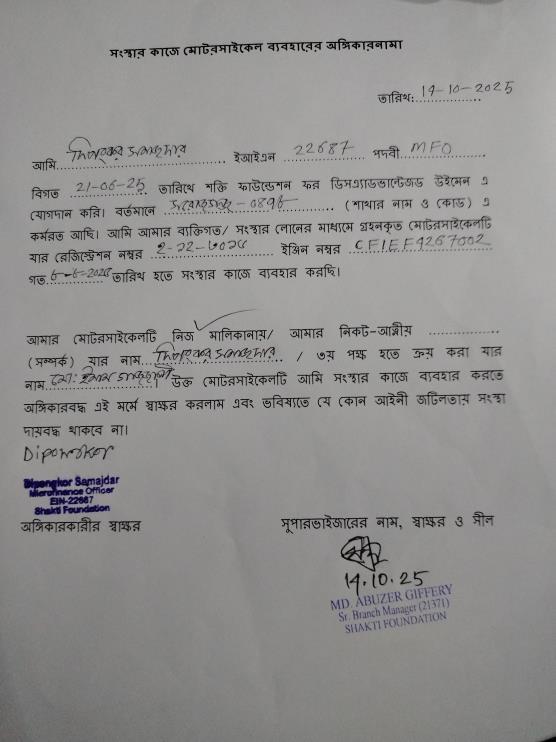 সংস্থার কাজে মোটরসাইকেল ব্যবহারের অঙ্গিকারনামা
তারিখ: 14-10-2025
আমি দিপংকর সমাজদার ইআইএন 22687 পদবী MFO
বিগত 21-06-25 তারিখে শক্তি ফাউন্ডেশন ফর ডিসএ্যাডভান্টেজড উইমেন এ
যোগদান করি। বর্তমানে - 0896 (শাখার নাম ও কোড) এ
কর্মরত আছি। আমি আমার ব্যক্তিগত/ সংস্থার লোনের মাধ্যমে গ্রহনকৃত মোটরসাইকেলটি
যার রেজিস্ট্রেশন নম্বর ইঞ্জিন নম্বর
গত তারিখ হতে সংস্থার কাজে ব্যবহার করছি।
আমার মোটরসাইকেলটি নিজ মালিকানায়/ আমার নিকট-আত্মীয়
(সম্পর্ক) যার নাম দিপংকর সমাজদার / ৩য় পক্ষ হতে ক্রয় করা যার
নাম মো: উক্ত মোটরসাইকেলটি আমি সংস্থার কাজে ব্যবহার করতে
অঙ্গিকারবদ্ধ এই মর্মে স্বাক্ষর করলাম এবং ভবিষ্যতে যে কোন আইনী জটিলতায় সংস্থা
দায়বদ্ধ থাকবে না।
Diponkor
Dipongkor Samajdar
Microfinance Officer
EIN-22687
Shakti Foundation
অঙ্গিকারকারীর স্বাক্ষর
সুপারভাইজারের নাম, স্বাক্ষর ও সীল
14.10.25
MD. ABUZER GIFFERY
Sr. Branch Manager (21371)
SHAKTI FOUNDATION